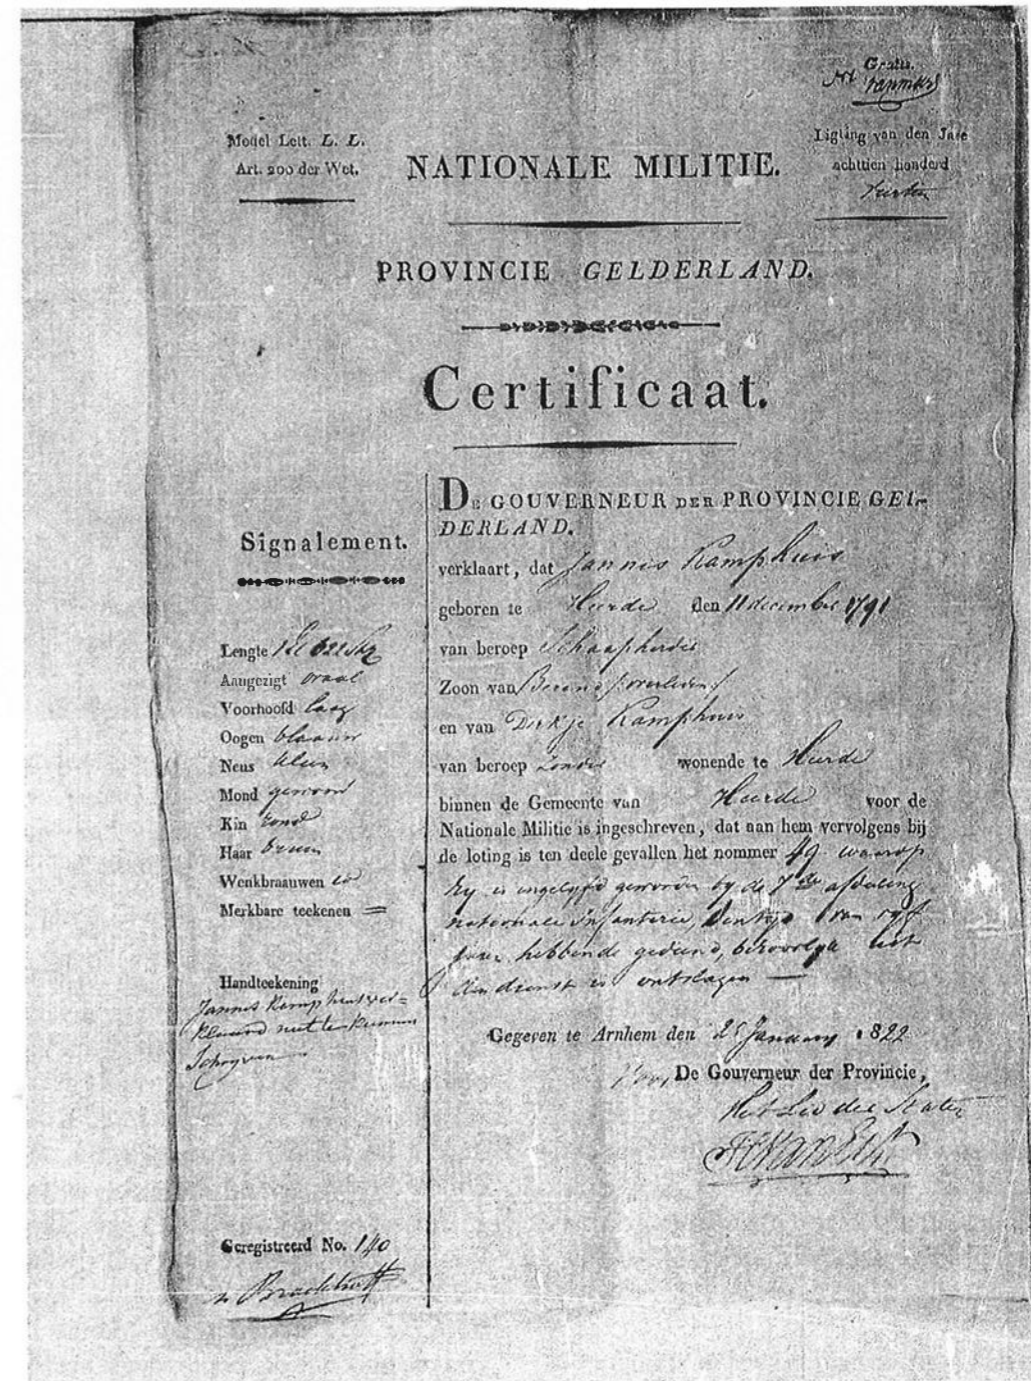 Gratis.
Model Lett. L. L.
Art. 200 der Wet.
NATIONALE MILITIE.
Ligting van den Jare
achttien honderd
PROVINCIE GELDERLAND.
Certificaat.
Signalement.
Lengte
Aangezigt ovaal
Voorhoofd laag
Oogen blaauw
Neus klein
Mond gewoon
Kin rond
Haar bruin
Wenkbraauwen id
Merkbare teekenen =
Handteekening
Jannis Kamphuis ver=
klaard niet te kunnen
Schryven
Geregistreerd No. 140
DE GOUVERNEUR DER PROVINCIE GEL-
DERLAND.
verklaart, dat Jannis Kamphuis
geboren te Heerde den 11 december 1791
van beroep Schaapherder
Zoon van Berend (overleden)
en van Dirkje Kamphuis
van beroep zonder wonende te Heerde
binnen de Gemeente van Heerde voor de
Nationale Militie is ingeschreven, dat aan hem vervolgens bij
de loting is ten deele gevallen het nommer 49 waarop
hy is ingelyfd geworden by de 7de afdeeling
nationale Infanterie, den tyd van vyf
Jaren hebbende gediend, behoorlyk uit
dien dienst is ontslagen
Gegeven te Arnhem den 25 January 1822
Voor De Gouverneur der Provincie,
Het Lid der Staten